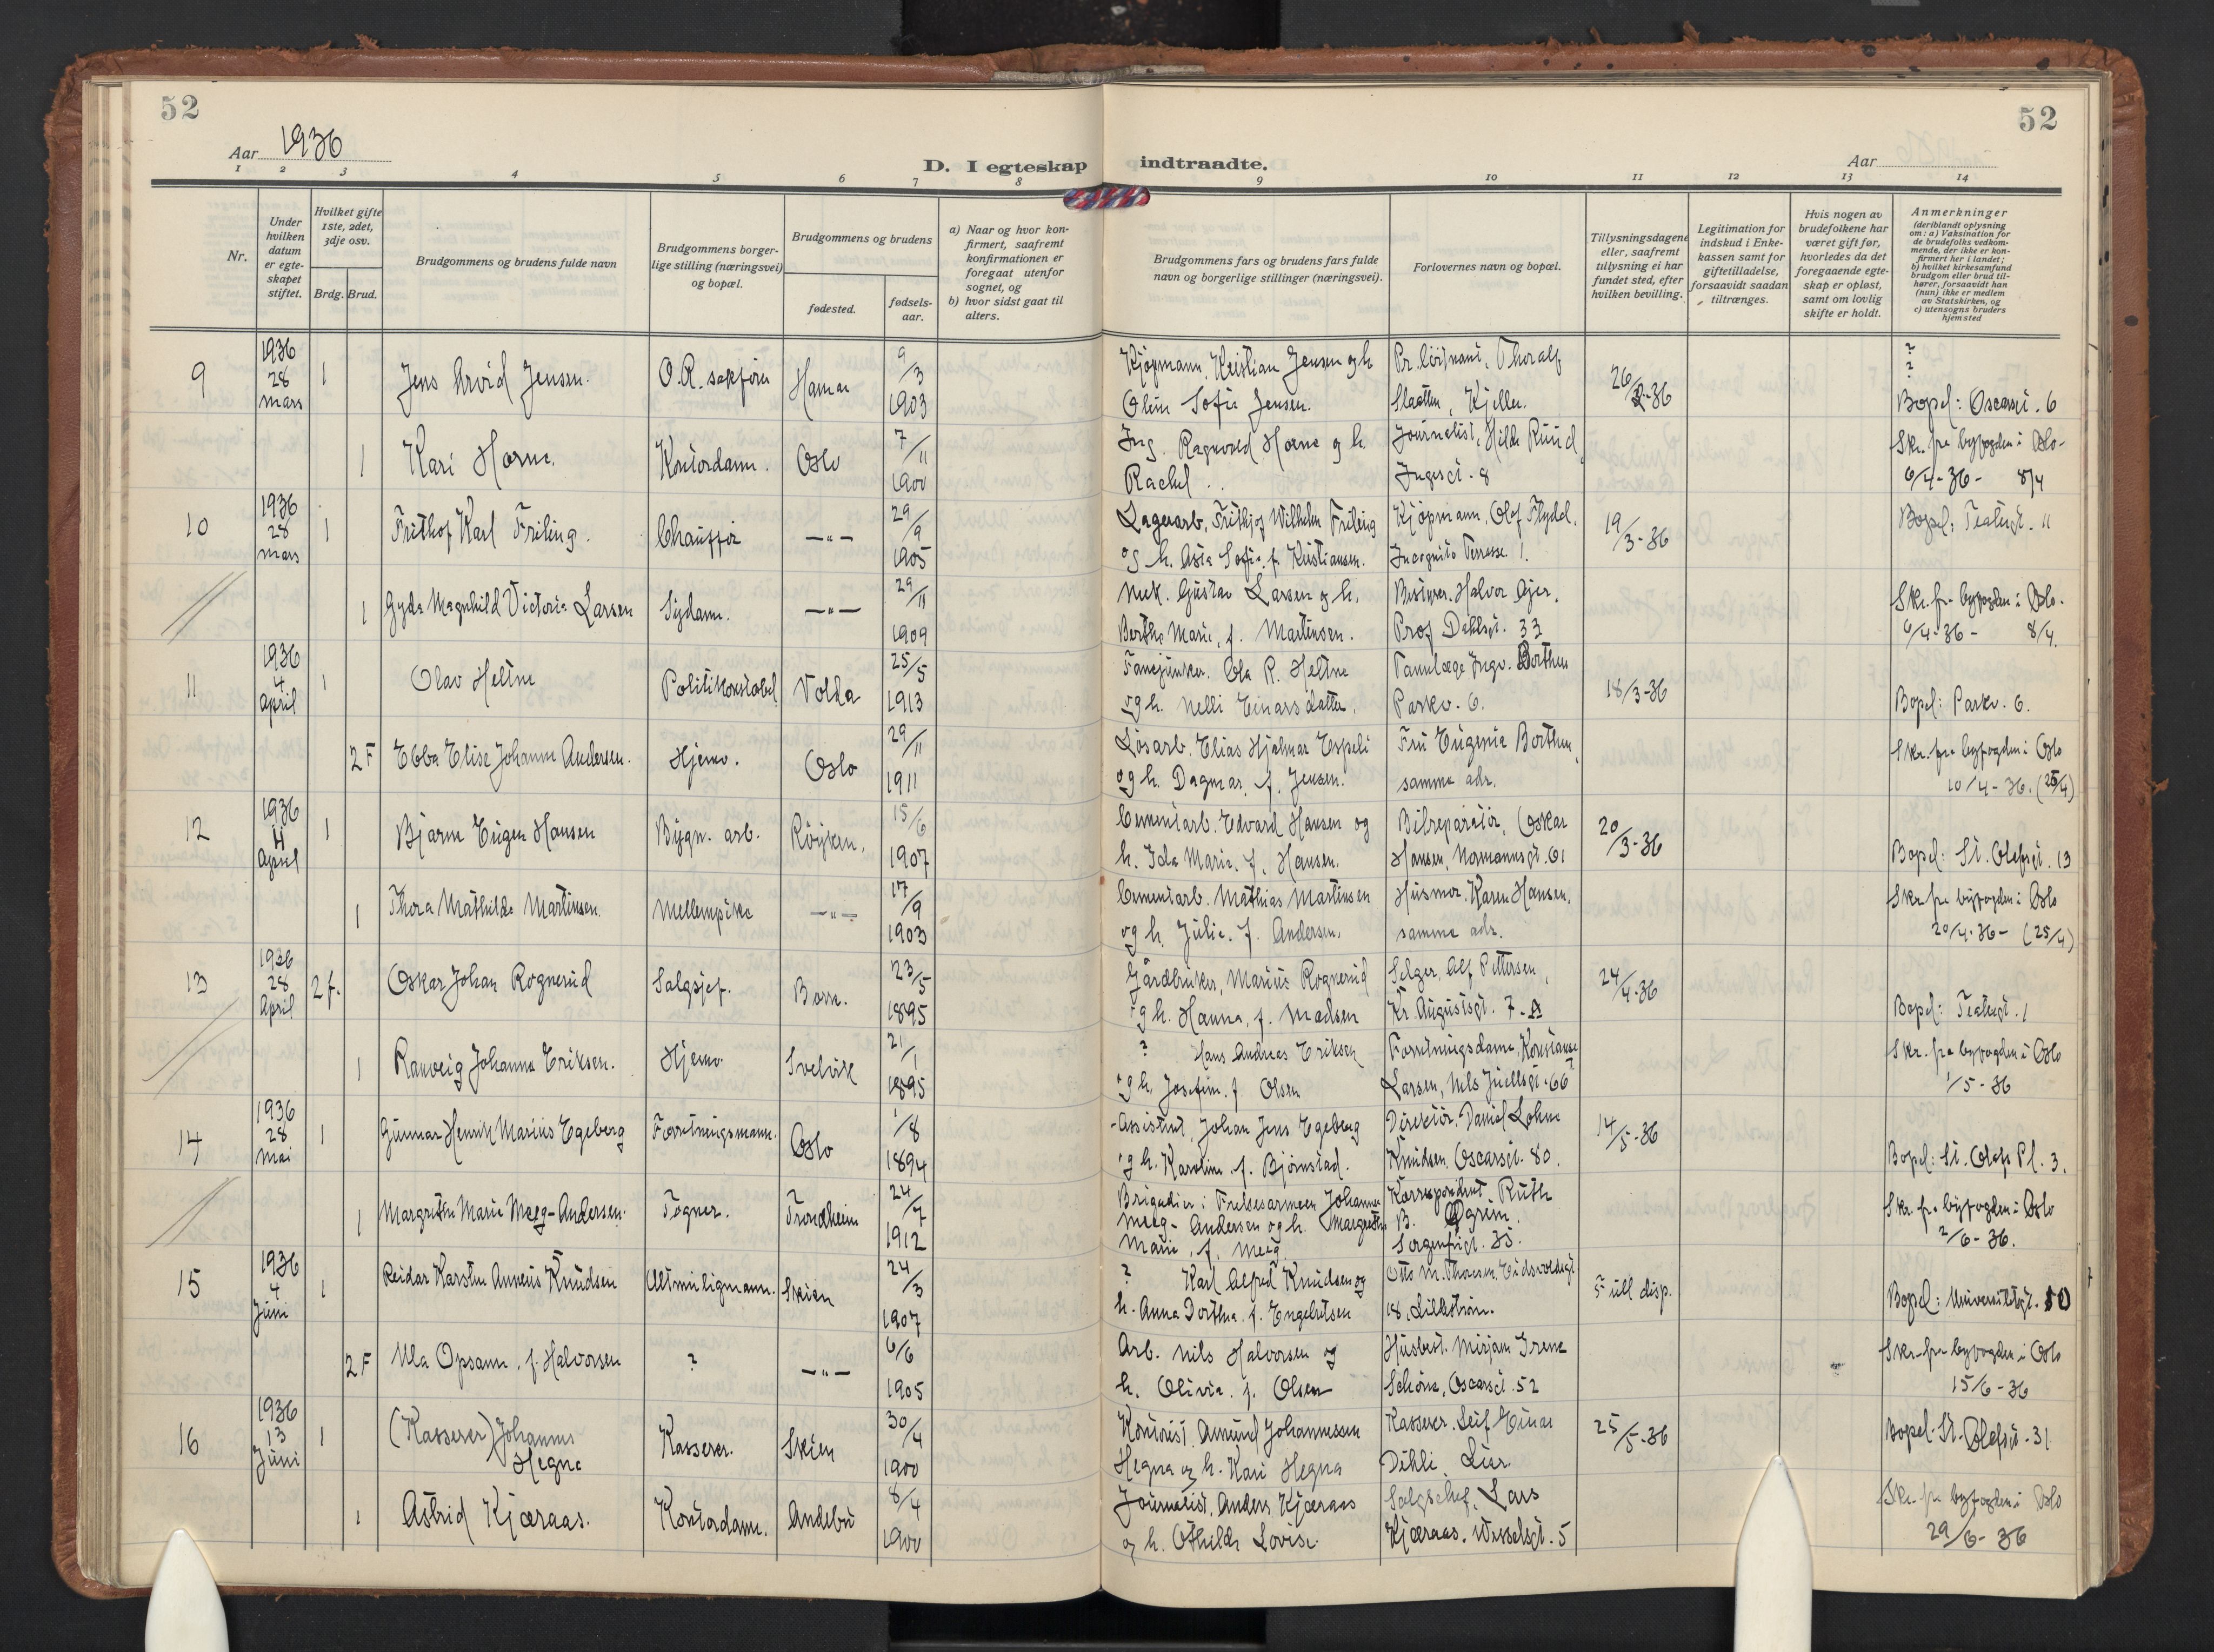 52
52
Aar 1936
D. I egteskap indtraadte.
Aar
1 2 3 4 5 6 7 8 9 10 11 12 13 14
Nr.
Under hvilken datum er egteskapet stiftet.
Hvilket gifte 1ste, 2det, 3dje osv.
Brdg. Brud.
Brudgommens og brudens fulde navn
Brudgommens borgerlige stilling (næringsvei) og bopæl.
Brudgommens og brudens
fødested.
fødselsaar.
a) Naar og hvor konfirmert, saafremt konfirmationen er foregaat utenfor sognet, og
b) hvor sidst gaat til alters.
Brudgommens fars og brudens fars fulde navn og borgerlige stillinger (næringsvei).
Forlovernes navn og bopæl.
Tillysningsdagene eller, saafremt tillysning ei har fundet sted, efter hvilken bevilling.
Legitimation for indskud i Enkekassen samt for giftetilladelse, forsaavidt saadan tiltrænges.
Hvis nogen av brudefolkene har været gift før, hvorledes da det foregaaende egteskap er opløst, samt om lovlig skifte er holdt.
Anmerkninger
(deriblandt oplysning om: a) Vaksination for de brudefolks vedkommende, der ikke er konfirmert her i landet;
b) hvilket kirkesamfund brudgom eller brud tilhører, forsaavidt han (hun) ikke er medlem av Statskirken, og
c) utensogns bruders hjemsted
9 1936 28 mars 1 Jens Arvid Jensen. O.R. sakfører Hamar 9/3 1903 Kjøpmann. Kristian Jensen og h. Sofie Jensen. Thoralf Slaatten, Kjeller. 26/2-36 ? ? Bopel: Oscarsgt. 6
1 Kari Horne. Kontordame. Oslo 7/11 1900 Ing. Ragnvald Horne og h. Rachel Journalist, Hilde Ruud Ingesgt. 8 Skr. fra byfogden i Oslo 6/4-36 - 8/4
10 1936 28 mars 1 Frithof Karl Friling. Chauffør —"— 29/9 1905 Lagerarb. Frithjof Wilhelm Friling og h. Asta Sofie, f. Kristiansen. Kjøpmann. Olaf Flydal. Incognito Terrasse 1. 19/3-36 Bopel: Teatergt. 11
1 Gyda Magnhild Victoria Larsen Sydame. —"— 29/11 1909 Mek. Gustav Larsen og h. Berthe Marie, f. Martinsen. Bestyrer. Halvor Gjer. Prof Dahlsgt. 33 Skr. fra byfogden i Oslo. 6/4-36 - 8/4.
11 1936 4 April 1 Olav Heltne Politikonstabel Volda 25/5 1913 Fanejunker. Ola R. Heltne og h. Nelli Einarsdatter. Tannlæge Ingv. Borthen Parkv. 6. 18/3-36 Bopel: Parkv. 6.
2 F Ebba Elise Johanne Andersen. Hjemv. Oslo 29/11 1911 Løsarb. Elias Hjalmar Espeli og h. Dagmar, f. Jensen. Fru Eugenia Borthen, samme adr. Skr. fra byfogden i Oslo 10/4-36. (25/4)
12 1936 4 April 1 Bjarne Eugen Hansen Bygn. arb. Røyken. 15/6 1907 Cementarb. Edvard Hansen og h. Ida Marie, f. Hansen. Bilreparatør, Oskar Hansen, Normannsgt. 61 20/3-36 Bopel: St. Olafsgt. 13
1 Thora Mathilde Martinsen. Mellempike —"— 17/9 1903 Cementarb. Mathias Martinsen og h. Julie. f. Andersen. Husmor. Karen Hansen. samme adr. Skr. fra byfogden i Oslo 20/4-36 - (25/4)
13 1936 28 April 2 f. Oskar Johan Rognerud Salgsjef. Borre. 23/5 1895 Gårdbruker, Marius Rognerud og h. Hanna, f. Madsen Selger. Alf Pettersen, Kr. Augustsgt. 7-A 24/4-36 Bopel: Teatergt. 1
1 Ranveig Johanne Eriksen. Hjemv. Svelvik 21/1 1895 ? Hans Andreas Eriksen og h. Josefine. f. Olsen Forretningsdame, Konstanse Larsen, Nils Juelsgt. 66 Skr. fra byfogden i Oslo 1/5-36
14 1936 28 Mai 1 Gunnar Henrik Marius Egeberg Forretningsmann. Oslo 1/8 1894 Assistent, Johan Jens Egeberg og h. Karoline, f. Bjørnstad. Direktør. Daniel Lohne Knudsen, Oscarsgt. 80. 14/5-36 Bopel: St. Olafs Pl. 3.
1 Margrethe Marie Meeg-Andersen. Tegner. Trondheim 24/7 1912 Brigadier i Frelsesarmeen Johannes Meeg-Andersen og h. Margrethe Marie, f. Meeg. Korrespondent Ruth B. Øgrim. Sorgenfrigt. 35. Skr. fra byfogden i Oslo 2/6-36.
15 1936 4 Juni 1 Reidar Karsten Anneus Knudsen Altmuligmann. Skien 24/3 1907 ? Karl Alfred Knudsen og h. Anna Dorthea. f. Engebretsen Otto M. Thoresen, Eidsvoldsgt. 18, Lillestrøm. Full disp. Bopel: Universitetsgt. 10
2 F Ula Opsann, f. Halvorsen ? —"— 6/6 1905 Arb. Nils Halvorsen og h. Olivia. f. Olsen Husbest. Mirjam Irene Schøne, Oscarsgt. 52 Skr. fra byfogden i Oslo 15/6-36
16 1936 13 Juni 1 (Kasserer) Johannes Hegna Kasserer. Skien 30/4 1900 Kontorist. Amund Johannessen Hegna og h. Kari Hegna Kasserer. Leif Einar Dihli, Lier. 25/5-36 Bopel. St. Olafsgt. 31
1 Astrid Kjæraas. Kontordame. Andebu 8/4 1900 Journalist. Anders Kjæraas og h. Othilde Lovise. Salgschef, Lars Kjæraas. Wesselsgt. 5 Skr. fra byfogden i Oslo 29/6-36